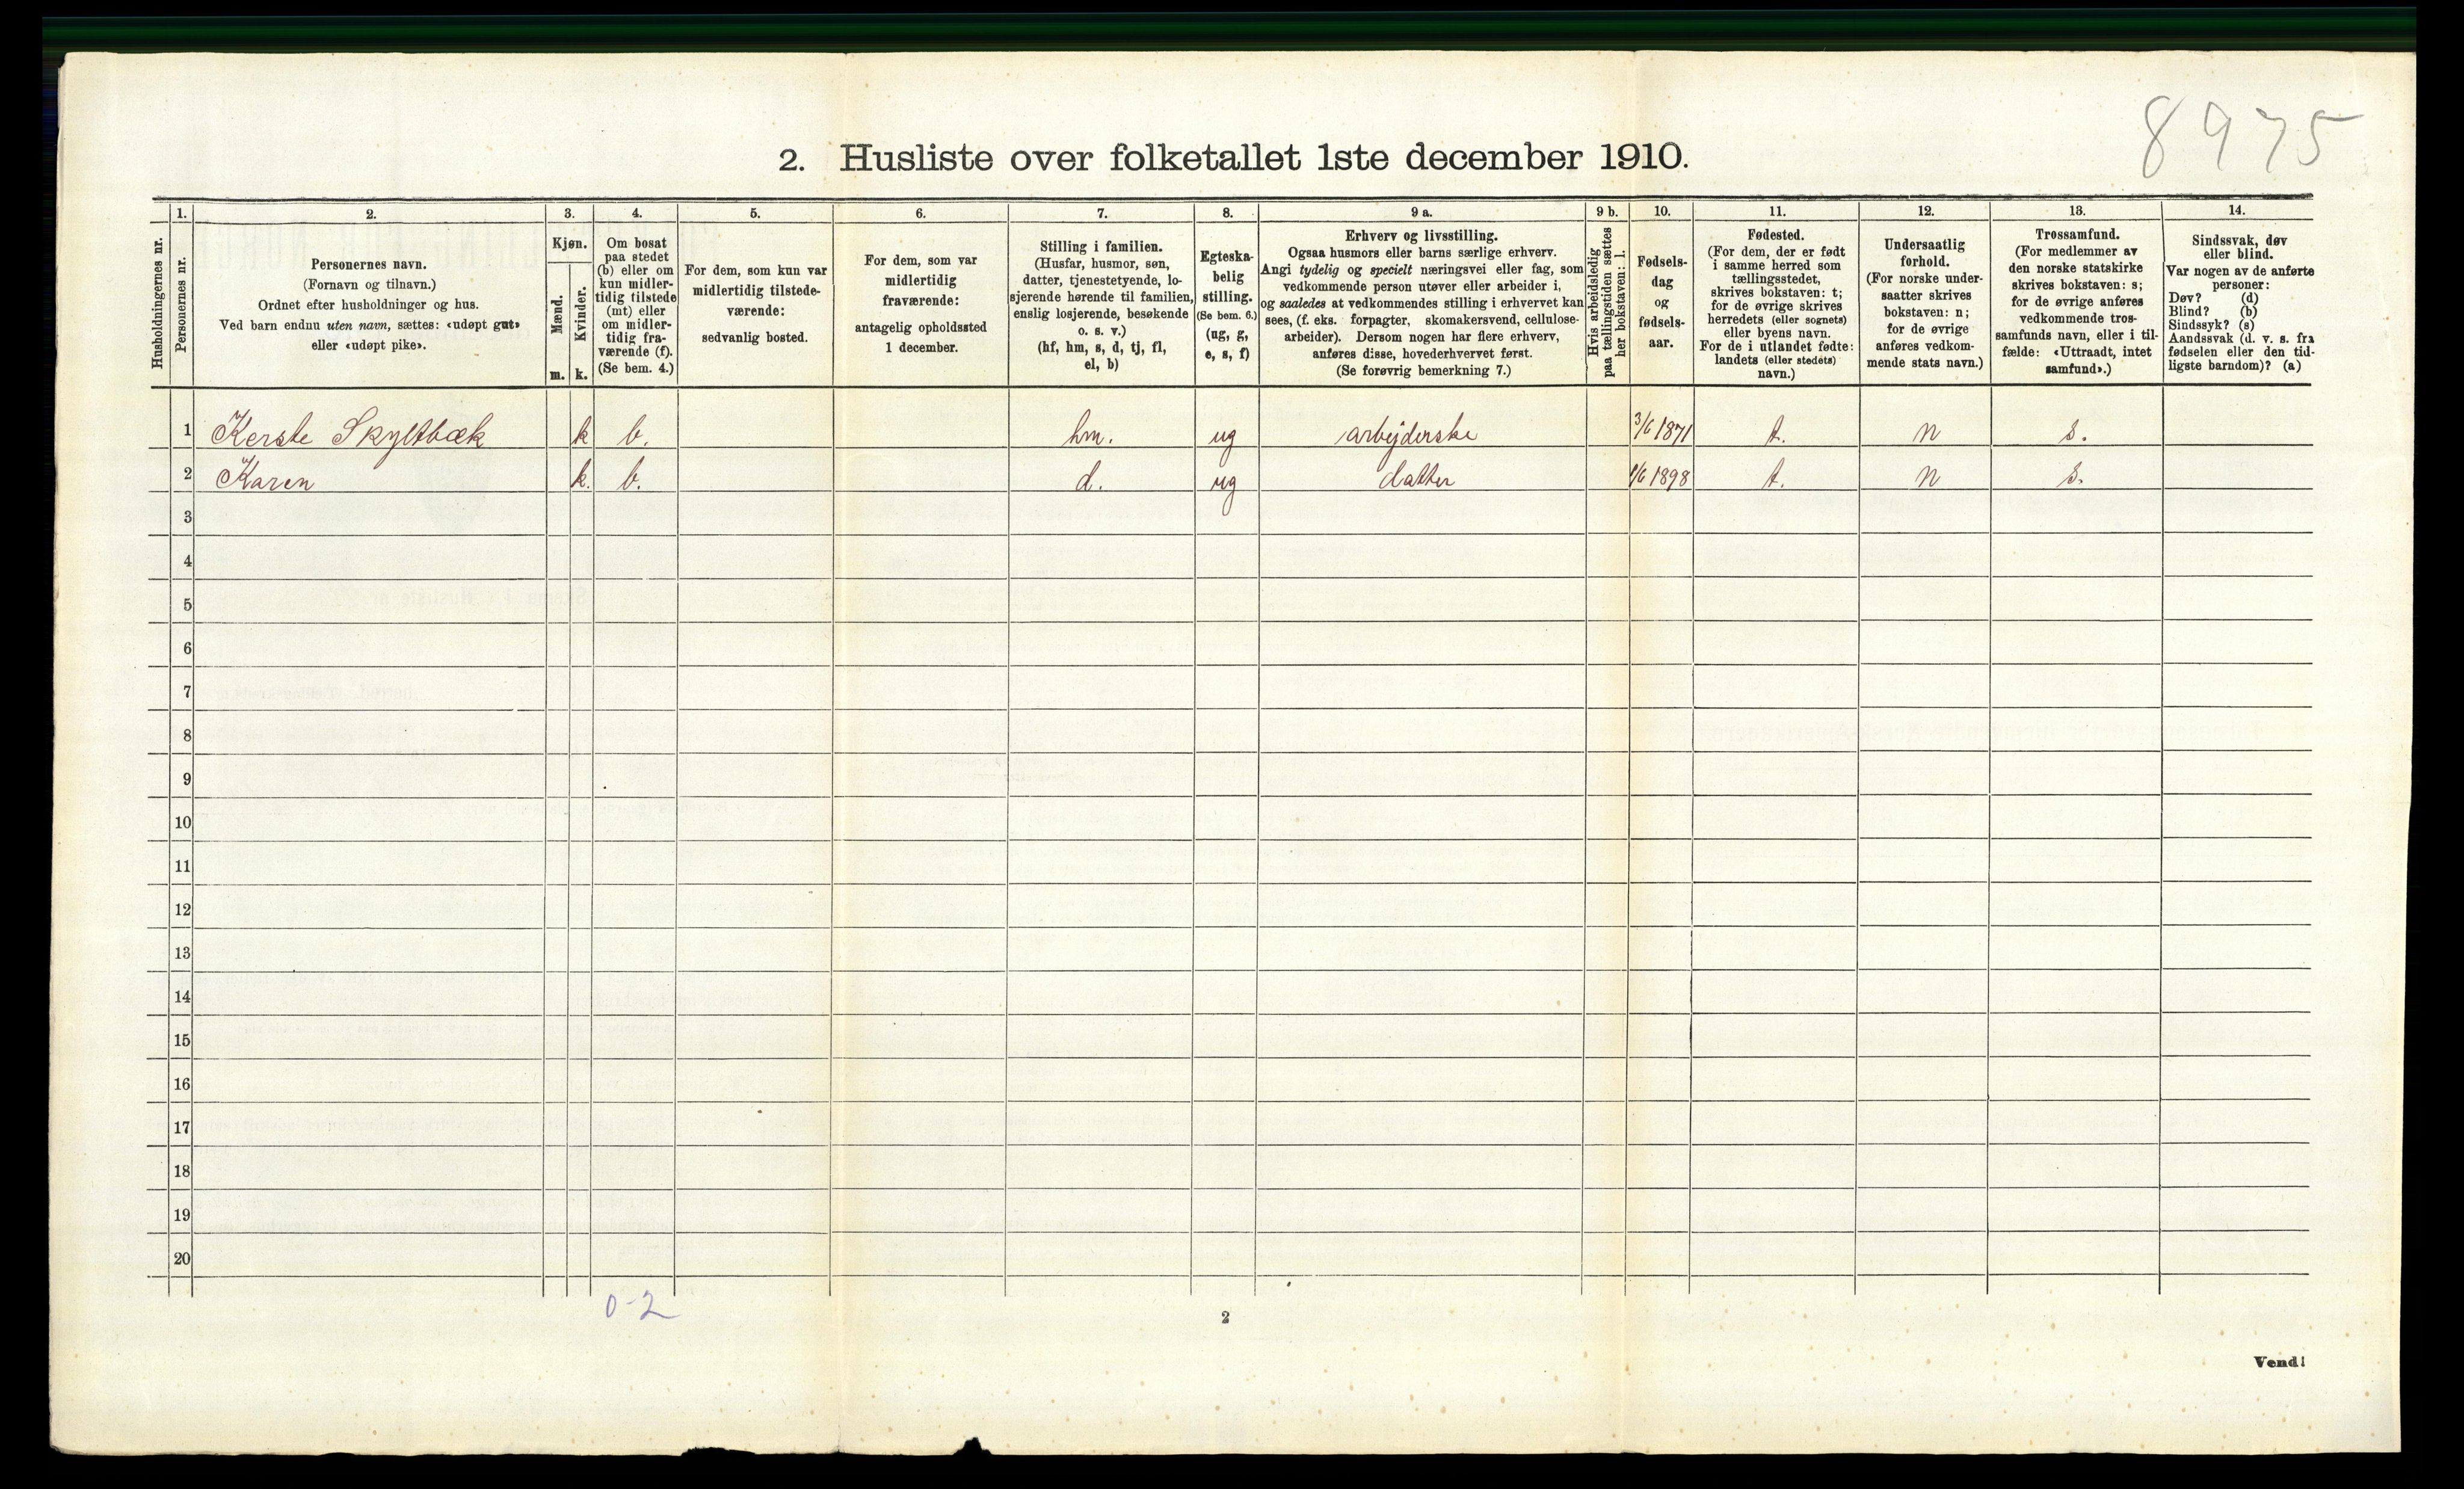 8975
2. Husliste over folketallet 1ste december 1910.
Husholdningernes nr.
1.
Personernes nr.
2.
Personernes navn.
(Fornavn og tilnavn.)
Ordnet efter husholdninger og hus.
Ved barn endnu uten navn, sættes: «udøpt gut»
eller «udøpt pike».
3.
Kjøn.
Mænd.
Kvinder.
m. k.
4.
Om bosat
paa stedet
(b) eller om
kun midler-
tidig tilstede
(mt) eller
om midler-
tidig fra-
værende (f).
(Se bem. 4.)
5.
For dem, som kun var
midlertidig tilstede-
værende:
sedvanlig bosted.
6.
For dem, som var
midlertidig
fraværende:
antagelig opholdssted
1 december.
7.
Stilling i familien.
(Husfar, husmor, søn,
datter, tjenestetyende, lo-
sjerende hørende til familien,
enslig losjerende, besøkende
o. s. v.)
(hf, hm, s, d, tj, fl,
el, b)
8.
Egteska-
belig
stilling.
(Se bem. 6.)
(ug, g,
e, s, f)
9 a.
Erhverv og livsstilling.
Ogsaa husmors eller barns særlige erhverv.
Angi tydelig og specielt næringsvei eller fag, som
vedkommende person utøver eller arbeider i,
og saaledes at vedkommendes stilling i erhvervet kan
sees, (f. eks. forpagter, skomakersvend, cellulose-
arbeider). Dersom nogen har flere erhverv,
anføres disse, hovederhvervet først.
(Se forøvrig bemerkning 7.)
9 b.
Hvis arbeidsledig
paa tællingstiden sættes
her bokstaven: l.
10.
Fødsels-
dag
og
fødsels-
aar.
11.
Fødested.
(For dem, der er født
i samme herred som
tællingsstedet,
skrives bokstaven: t;
for de øvrige skrives
herredets (eller sognets)
eller byens navn.
For de i utlandet fødte:
landets (eller stedets)
navn.)
12.
Undersaatlig
forhold.
(For norske under-
saatter skrives
bokstaven: n;
for de øvrige
anføres vedkom-
mende stats navn.)
13.
Trossamfund.
(For medlemmer av
den norske statskirke
skrives bokstaven: s;
for de øvrige anføres
vedkommende tros-
samfunds navn, eller i til-
fælde: «Uttraadt, intet
samfund».)
14.
Sindssvak, døv
eller blind.
Var nogen av de anførte
personer:
Døv? (d)
Blind? (b)
Sindssyk? (s)
Aandssvak (d. v. s. fra
fødselen eller den tid-
ligste barndom)? (a)
1 Kerste Skyltbæk k b. hm. ug arbejderske 3/6 1871 t. n s.
2 Karen k. b. d. ug datter 1/6 1898 t. n s.
3
4
5
6
7
8
9
10
11
12
13
14
15
16
17
18
19
20
0-2
2
Vend!